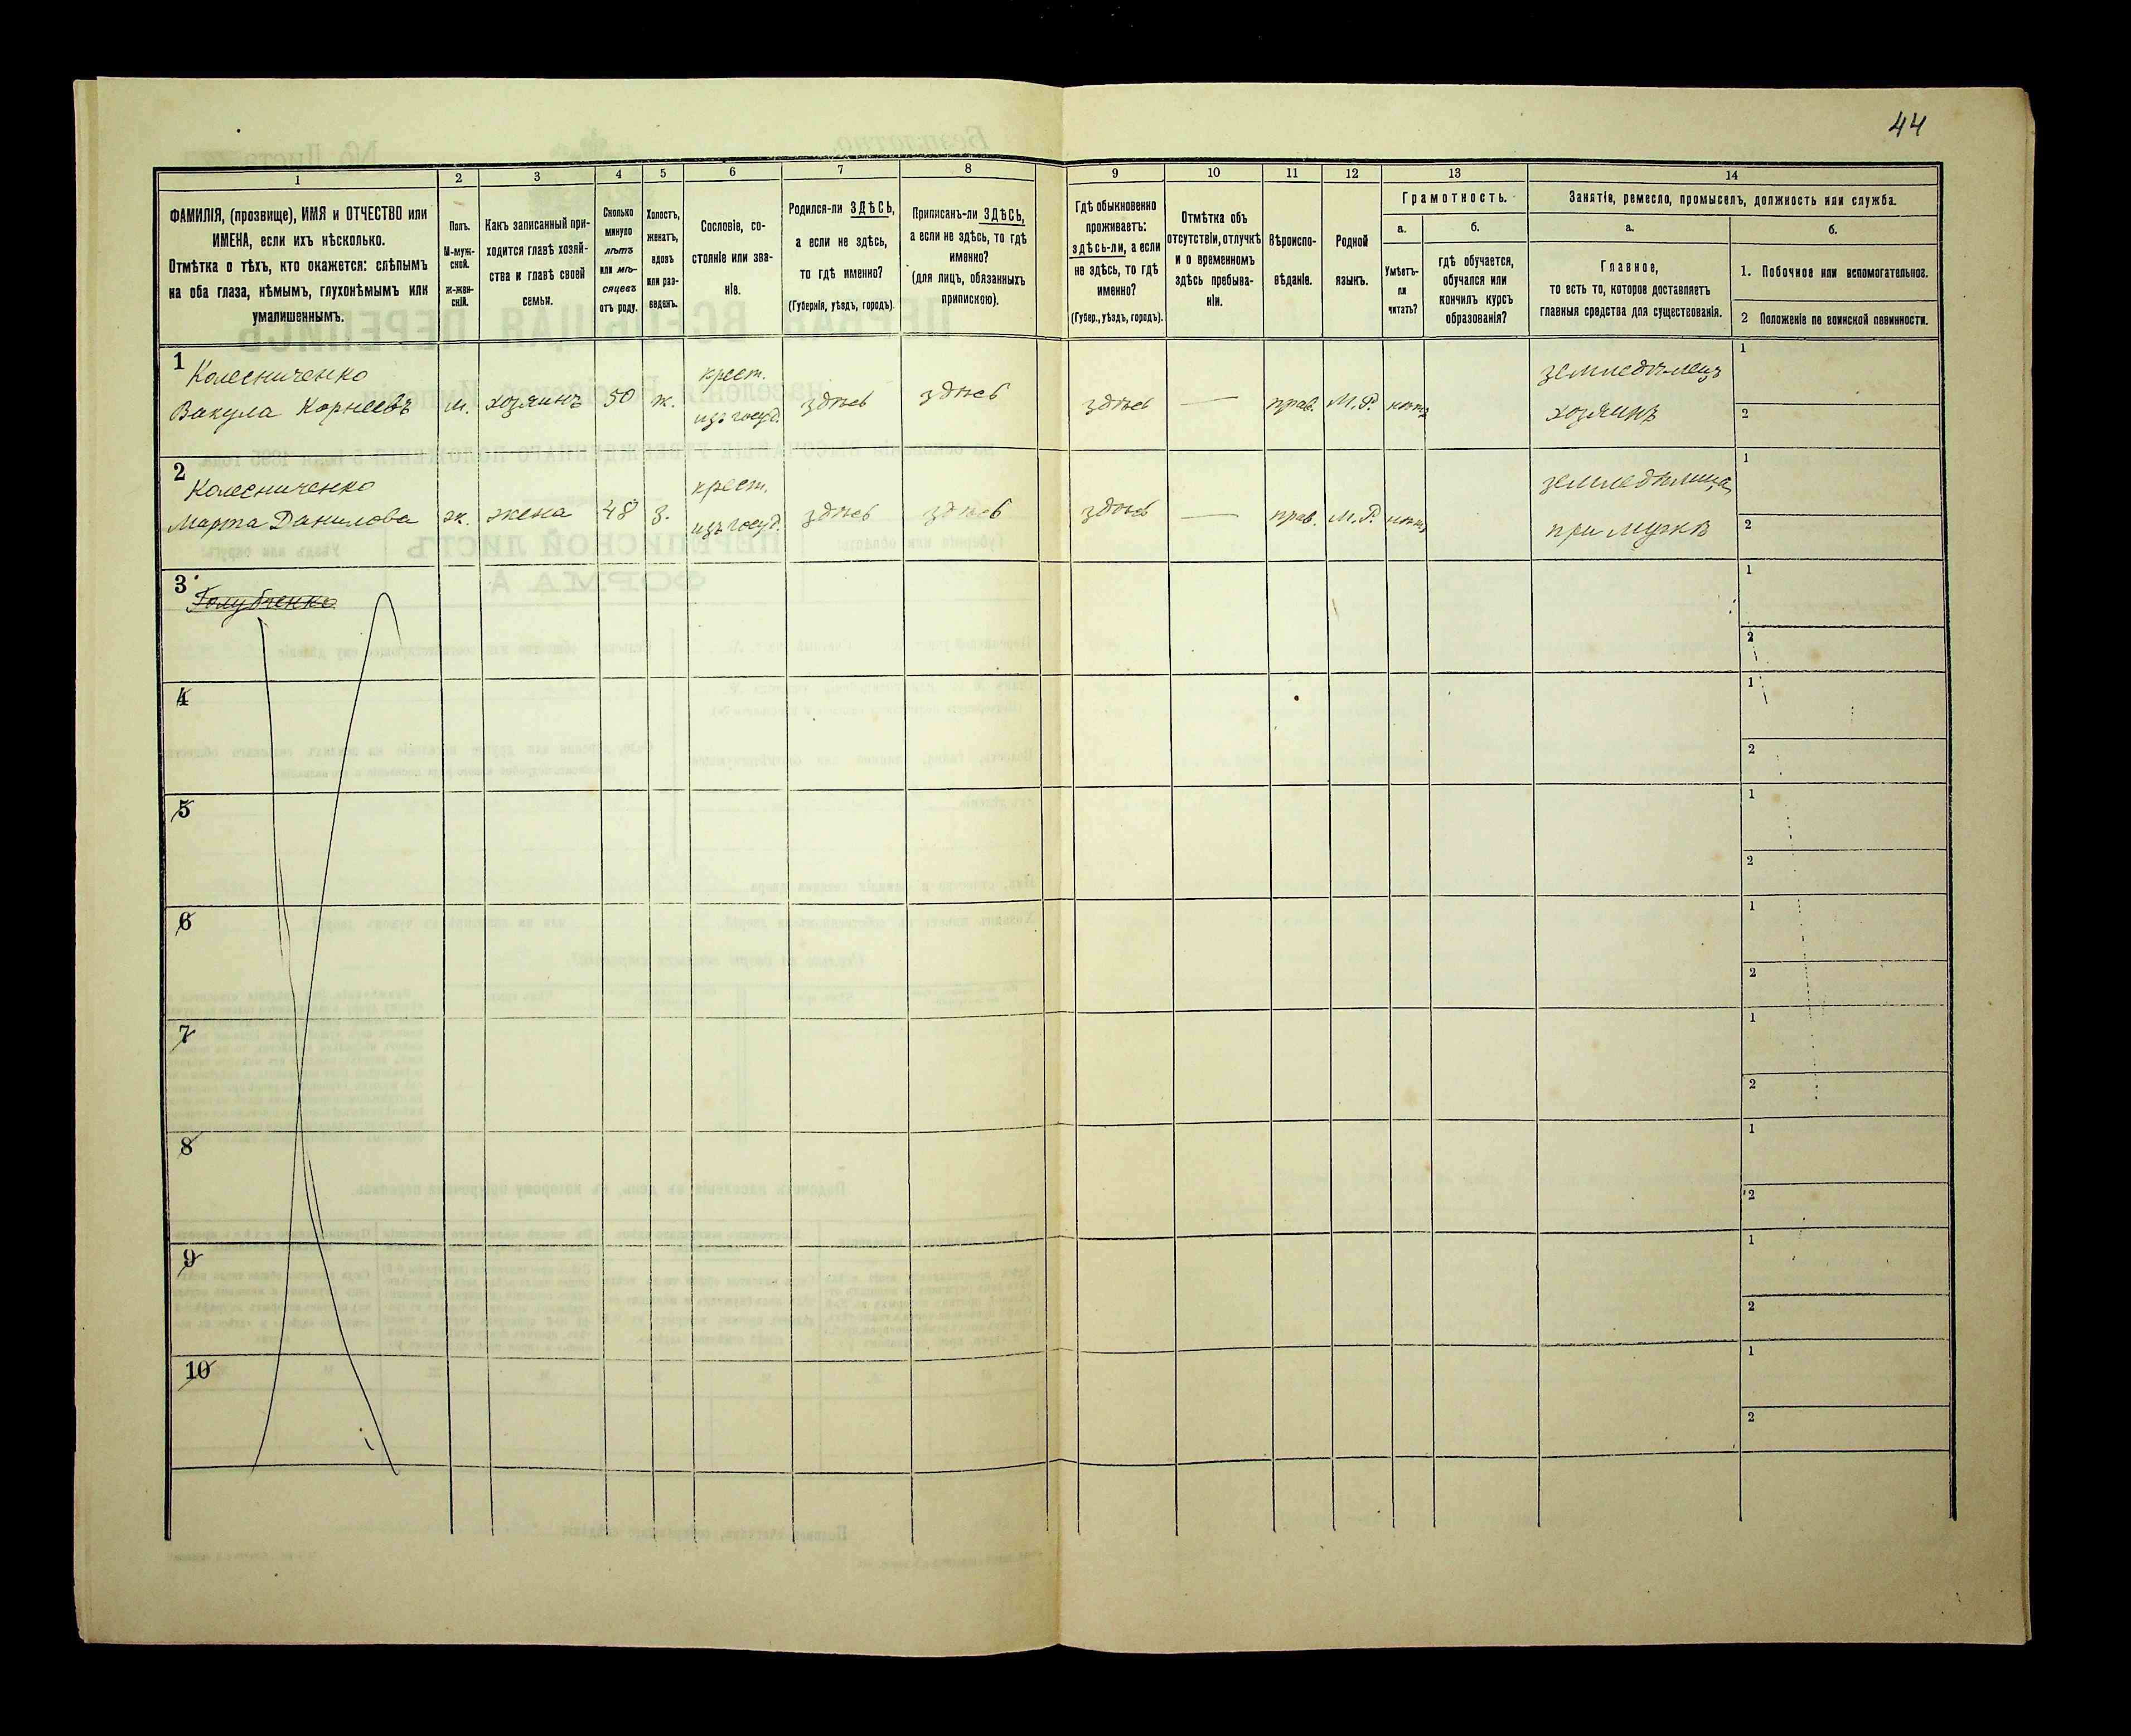 44
1
2
3
4
5
6
7
8
9
10
11
12
13
14
ФАМИЛІЯ, (прозвище), ИМЯ и ОТЧЕСТВО или
ИМЕНА, если ихъ нѣсколько.
Отмѣтка о тѣхъ, кто окажется: слѣпымъ
на оба глаза, нѣмымъ, глухонѣмымъ или
умалишеннымъ.
Полъ.
М-муж-
ской.
ж-жен-
скій.
Какъ записанный при-
ходится главѣ хозяй-
ства и главѣ своей
семьи.
Сколько
минуло
лѣтъ
или мѣ-
сяцевъ
отъ роду.
Холостъ,
женатъ,
вдовъ
или раз-
веденъ.
Сословіе, со-
стояніе или зва-
ніе.
Родился-ли ЗДѢСЬ,
а если не здѣсь,
то гдѣ именно?
(Губернія, уѣздъ, городъ).
Приписанъ-ли ЗДѢСЬ,
а если не здѣсь, то гдѣ
именно?
(для лицъ, обязанныхъ
припискою).
Гдѣ обыкновенно
проживаетъ:
здѣсь-ли, а если
не здѣсь, то гдѣ
именно?
(Губер., уѣздъ, городъ).
Отмѣтка объ
отсутствіи, отлучкѣ
и о временномъ
здѣсь пребыва-
ніи.
Вѣроиспо-
вѣданіе.
Родной
языкъ.
Грамотность.
а.
Умѣетъ-
ли
читать?
б.
гдѣ обучается,
обучался или
кончилъ курсъ
образованія?
Занятіе, ремесло, промыселъ, должность или служба.
а.
Главное,
то есть то, которое доставляетъ
главныя средства для существованія.
б.
1. Побочное или вспомогательное.
2 Положеніе по воинской повинности.
1
Колесниченко
Вакула Корнеевъ
м.
хозяинъ
50
ж.
крест.
изъ госуд.
здѣсь
здѣсь
здѣсь
—
прав.
М.Р.
нѣтъ
земледѣлецъ
хозяинъ
1
2
2
Колесниченко
Марта Данилова
ж.
жена
48
з.
крест.
изъ госуд.
здѣсь
здѣсь
здѣсь
—
прав.
М.Р.
нѣтъ
земледѣлица
при мужѣ
1
2
3
Голубченко
1
2
4
1
2
5
1
2
6
1
2
7
1
2
8
1
2
9
1
2
10
1
2